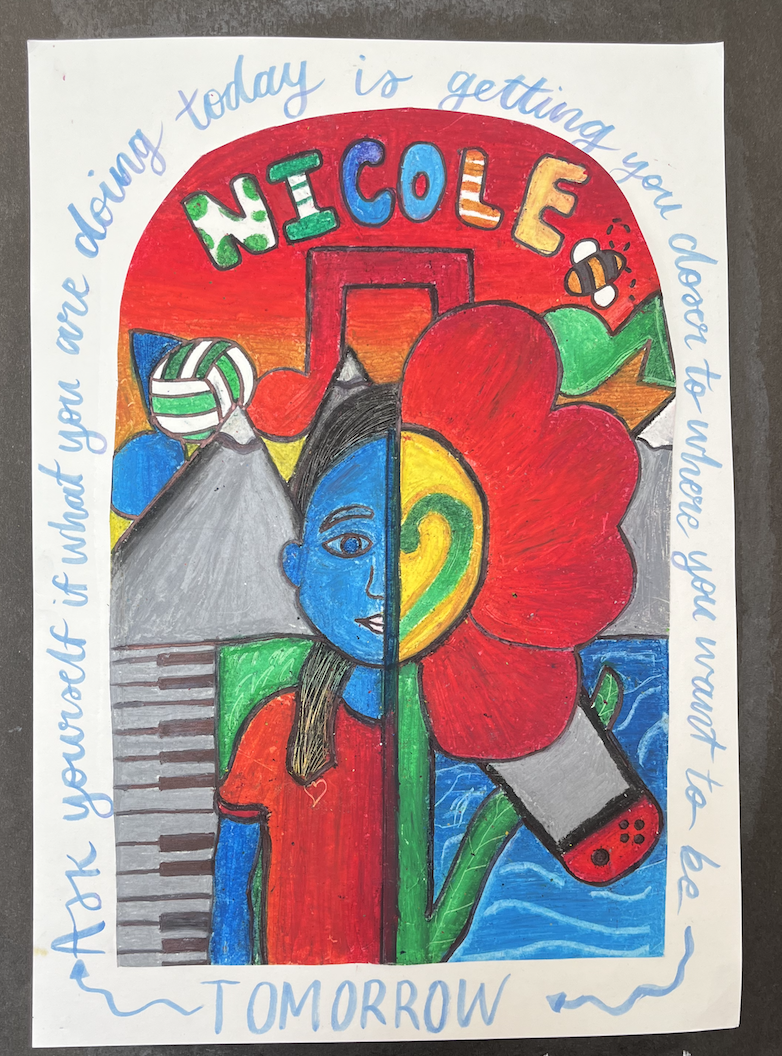 Ask yourself if what you are doing today is getting you closer to where you want to be
TOMORROW
NICOLE